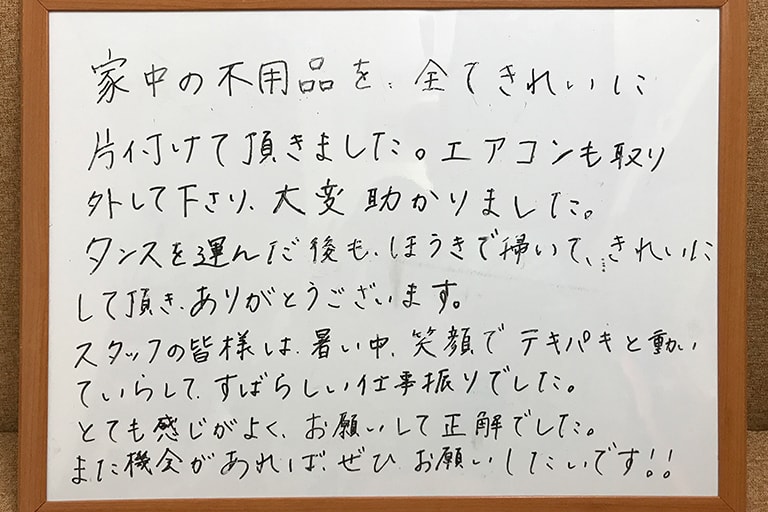 家中の不用品を、全てきれいに
片付けて頂きました。エアコンも取り
外して下さり、大変助かりました。
タンスを運んだ後も、ほうきで掃いて、きれいに
して頂き、ありがとうございます。
スタッフの皆様は、暑い中、笑顔でテキパキと動い
ていらして、すばらしい仕事振りでした。
とても感じがよく、お願いして正解でした。
また機会があれば、ぜひ、お願いしたいです!!